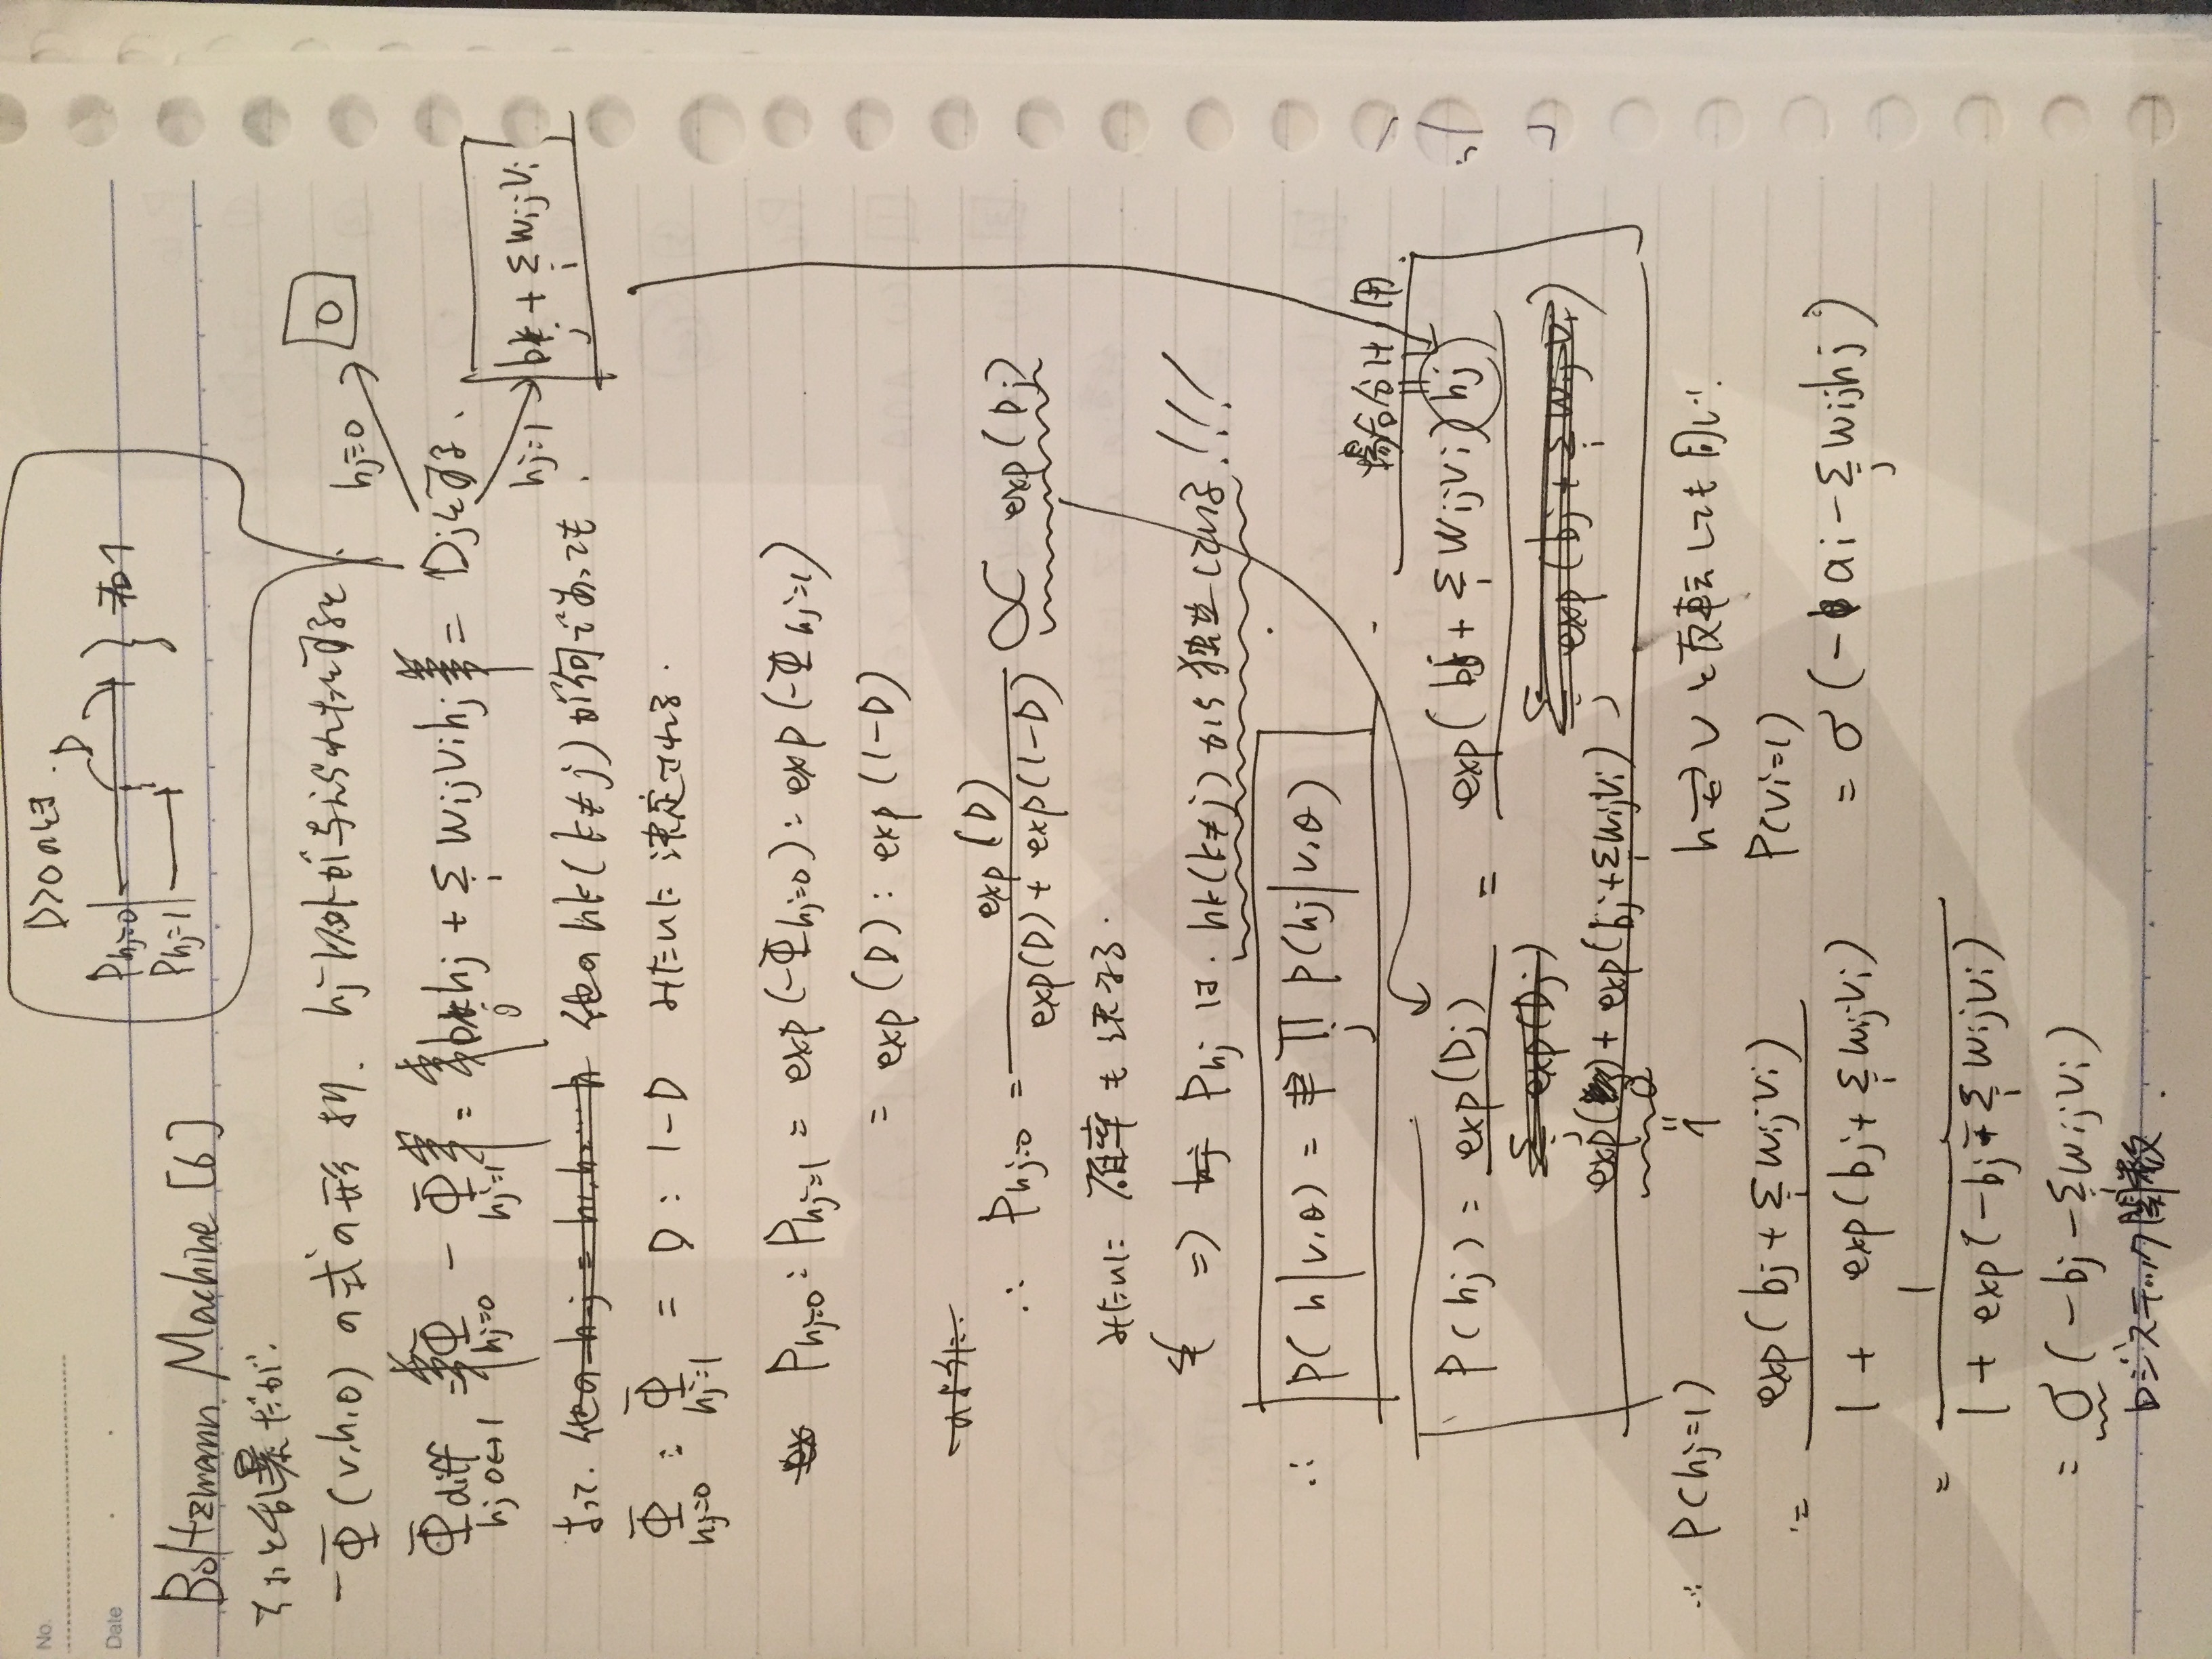 No.
Date
D>0のとき.
D
Phj=0
Phj=1
Boltzmann Machine [6]
乱暴だが.
-Φ(v,h,θ)の式の形より. hj以外が与えられたとすると.
Φdiff hj 0↔1 = Φhj=0 - Φhj=1 = bjhj + Σi wijvihj = Djとする.
hj=0 → 0
hj=1 → bj + Σi wijvi
よって. 他のhk(k≠j)が何であっても.
Φhj=0 : Φhj=1 = D : 1-D みたいに決定される.
Phj=0 : Phj=1 = exp(-Φhj=0) : exp(-Φhj=1)
= exp(D) : exp(1-D)
∴ Phj=0 = exp(D) / exp(D)+exp(1-D) ∝ exp(Dj)
みたいに 確率も決まる.
⇒ Phj は. hk(k≠j)から独立している!!!
∴ P(h|v,θ) = Πj p(hj|v,θ)
場合分け用.
P(hj) = exp(Dj) / exp(0) + exp(bj+Σi wijvi) = exp(bj + Σi wijvi)hj)
Σj exp(Dj)
Σj exp(bj + Σi wijvi)
= 1
∴ P(hj=1)
= exp(bj + Σi wijvi) / 1 + exp(bj + Σi wijvi)
= 1 / 1 + exp(-bj - Σi wijvi)
= σ(-bj - Σi wijvi)
ロジスティック関数.
h⇄v と反転しても同じ!
P(vi=1)
= σ(-ai - Σj wijhj)